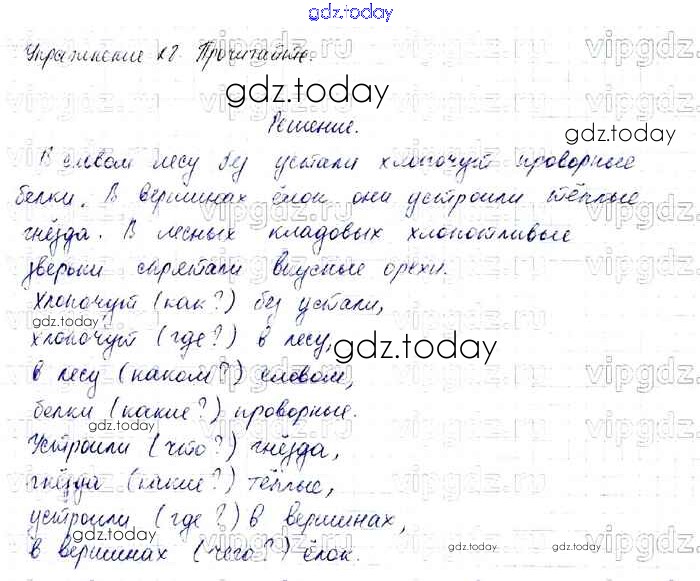 gdz.today
Упражнение 28. Прочитайте.
gdz.today
Решение.
gdz.today
В еловом лесу без устали хлопочут проворные
белки. В вершинах ёлок они устроили тёплые
гнёзда. В лесных кладовых хлопотливые
зверьки спрятали вкусные орехи.
Хлопочут (как?) без устали,
gdz.today
хлопочут (где?) в лесу,
gdz.today
в лесу (каком?) еловом,
белки (какие?) проворные.
gdz.today
Устроили (что?) гнёзда,
гнёзда (какие?) тёплые,
gdz.today
устроили (где?) в вершинах,
в вершинах (чего?) ёлок.
gdz.today
gdz.today
vipgdz.ru